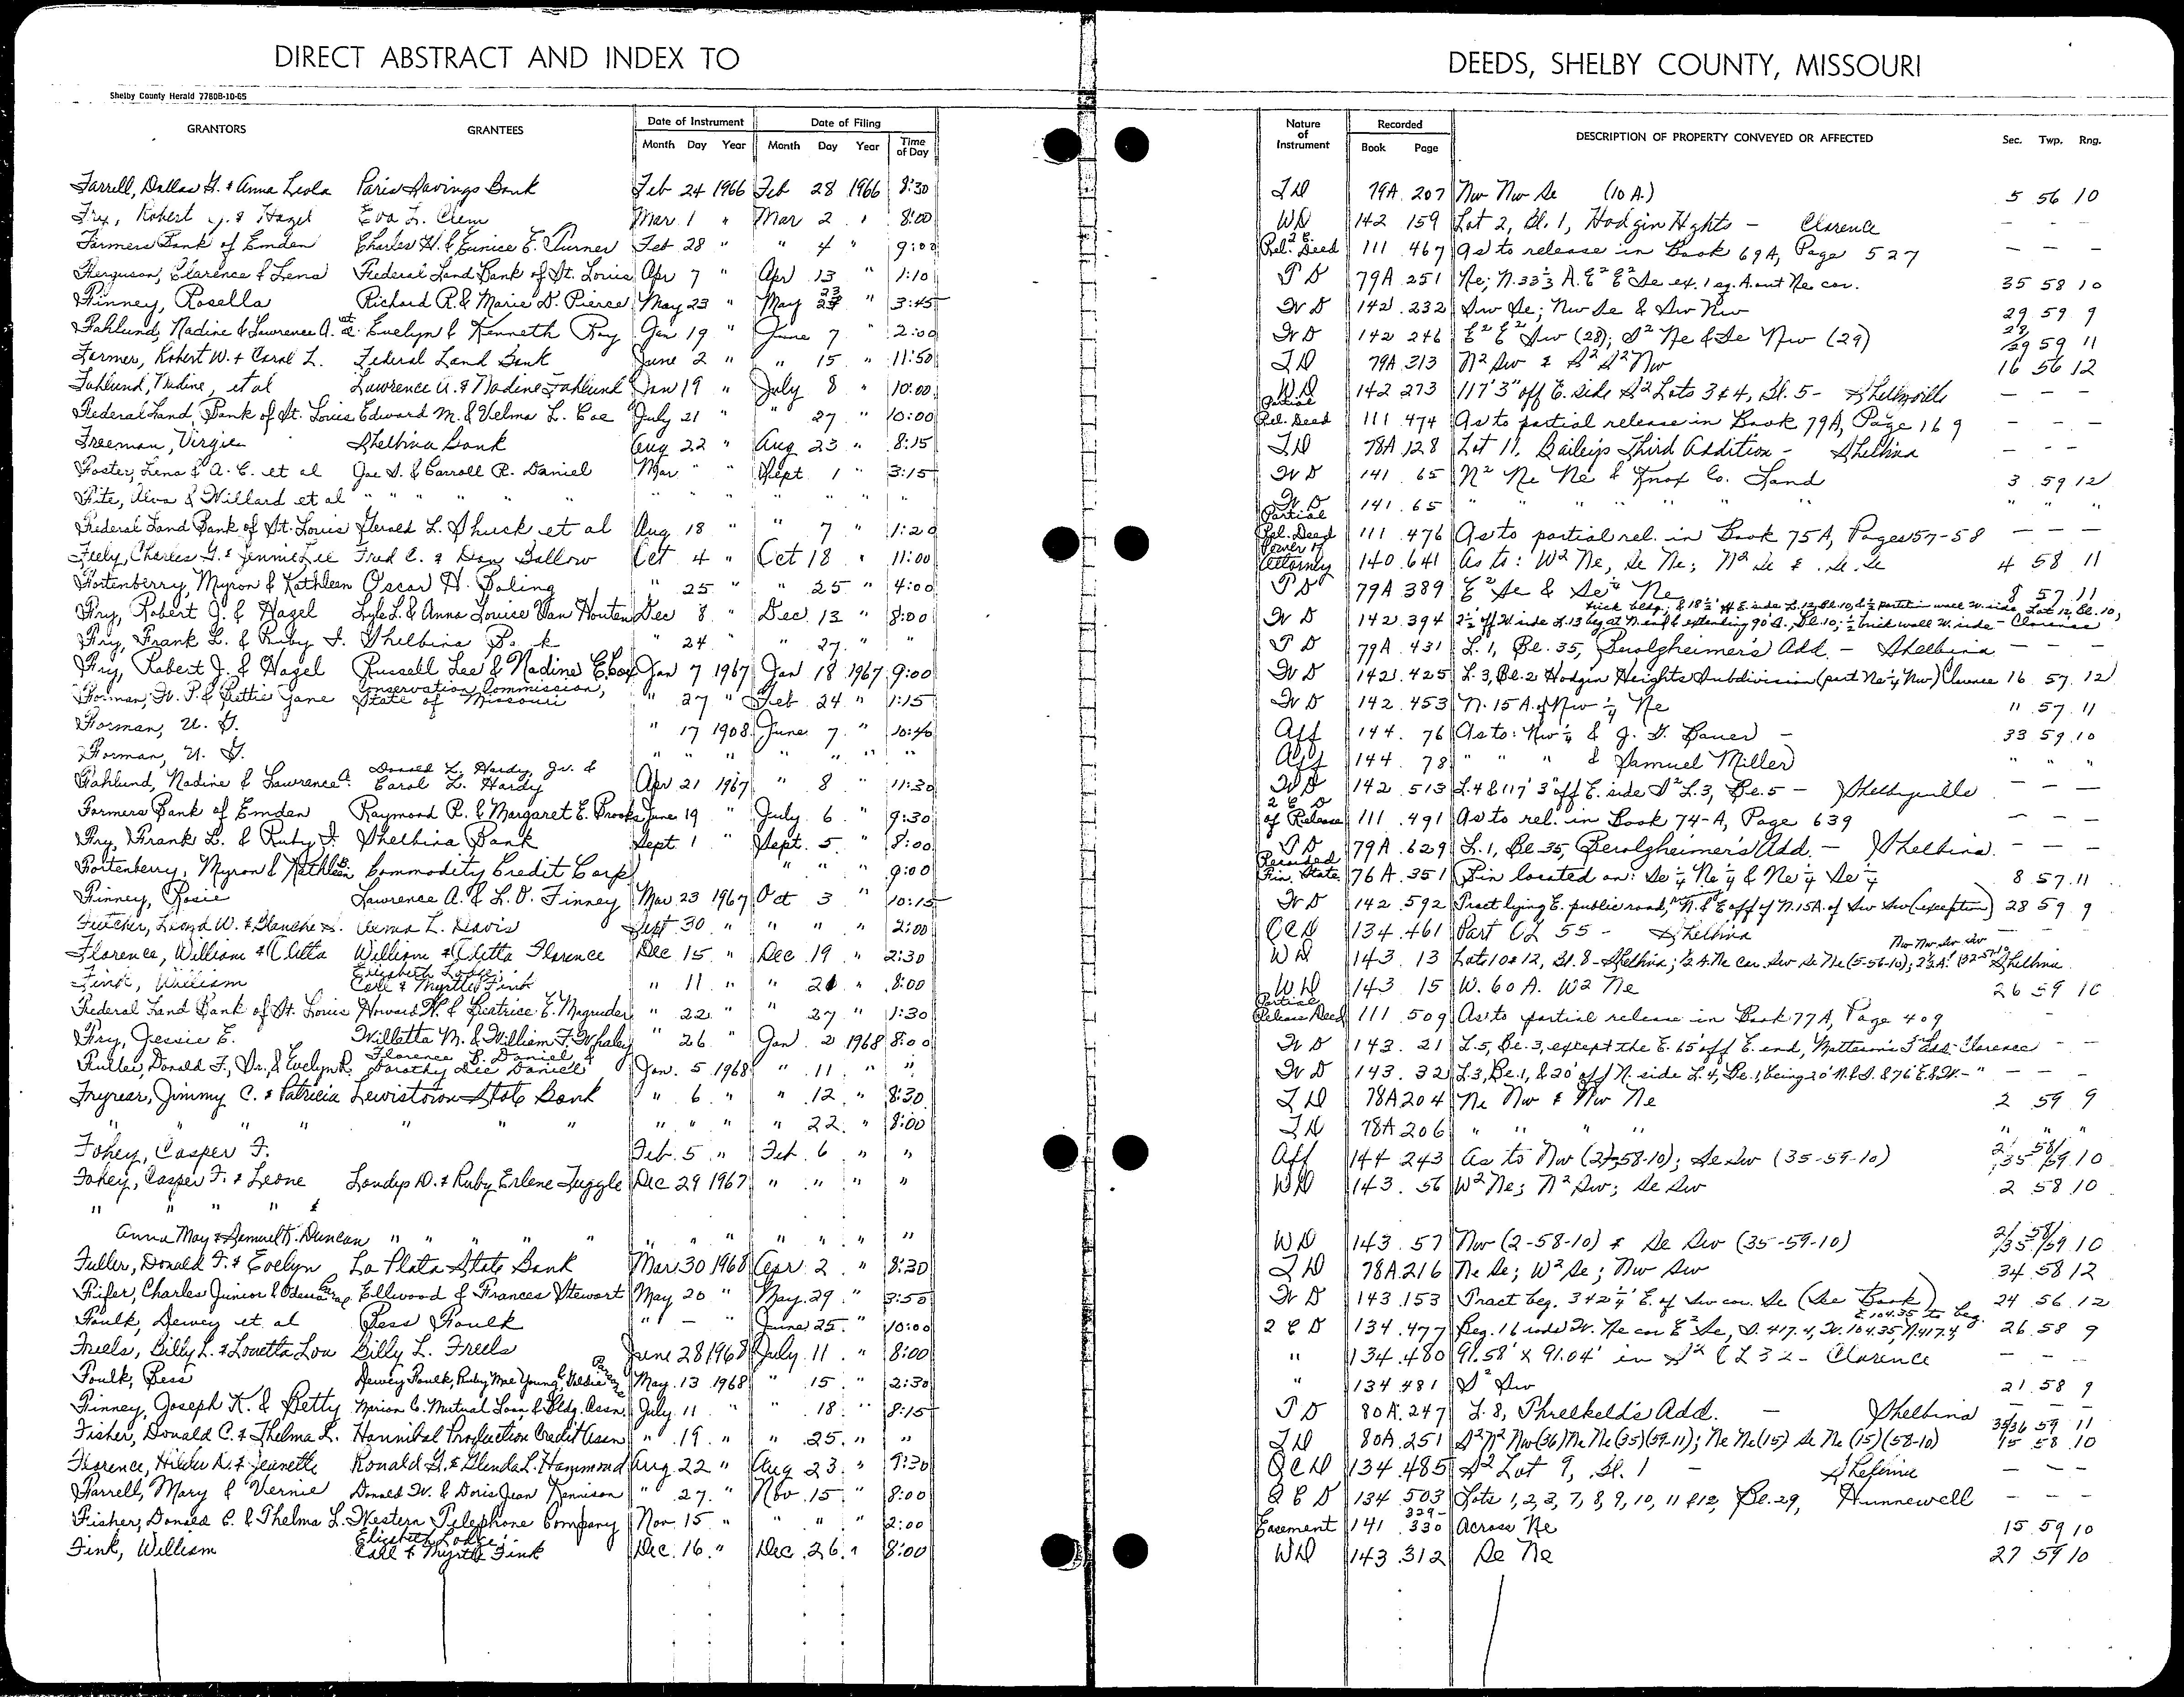 DIRECT ABSTRACT AND INDEX TO
DEEDS, SHELBY COUNTY, MISSOURI
Shelby County Herald 7780B-10-65
GRANTORS GRANTEES Date of Instrument Month Day Year Date of Filing Month Day Year Time of Day Nature of Instrument Recorded Book Page DESCRIPTION OF PROPERTY CONVEYED OR AFFECTED Sec. Twp. Rng.
Farrell, Dallas G. & Anna Leola Paris Savings Bank Feb 24 1966 Feb 28 1966 8:30 TD 79A 207 Nw Nw Se (10 A.) 5 56 10
Fry, Robert J. & Hazel Eva L. Clem Mar 1 " Mar 2 " 8:00 WD 142 159 Lot 2, Bl. 1, Hodgin Hghts - Clarence - - -
Farmers Bank of Emden Charles H. & Eunice E. Turner Feb 28 " " 4 " 9:00 2 E. Rel. Deed 111 467 As to release in Book 69A, Page 527 - - -
Ferguson, Clarence & Lena Federal Land Bank of St. Louis Apr 7 " Apr 13 " 1:10 TD 79A 251 Ne; N. 33⅓ A. E² E² Se ex. 1 sq. A. out Ne cor. 35 58 10
Finney, Rosella Richard R. & Marie D. Pierce May 23 " May 23 " 3:45 WD 142 232 Sw Se; Nw Se & Sw Nw 29 59 9
Fahlund, Nadine & Lawrence A. et al. Evelyn & Kenneth Ray Jan 19 " June 7 " 2:00 WD 142 246 E² E² Sw (28); S² Ne & Se Nw (29) 28/29 59 11
Farmer, Robert W. & Carol L. Federal Land Bank June 2 " " 15 " 11:50 TD 79A 313 N² Sw & S² S² Nw 16 56 12
Fahlund, Nadine, et al Lawrence A. & Nadine Fahlund Jan 19 " July 8 " 10:00 WD 142 273 117' 3" off E. side S² Lots 3 & 4, Bl. 5 - Shelbyville - - -
Federal Land Bank of St. Louis Edward M. & Velma L. Coe July 21 " " 27 " 10:00 Partial Rel. Deed 111 474 As to partial release in Book 79A, Page 169 - - -
Freeman, Virgie Shelbina Bank Aug 22 " Aug 23 " 8:15 TD 78A 128 Lot 11, Bailey's Third Addition - Shelbina - - -
Foster, Lena & A. C. et al Joe S. & Carroll R. Daniel Mar " " Sept 1 " 3:15 WD 141 65 N² Ne Ne & Knox Co. Land 3 59 12
Fite, Alva & Willard et al " " " " " " " " " " " WD 141 65 " " " " " " "
Federal Land Bank of St. Louis Gerald L. Shuck et al Aug 18 " " 7 " 1:20 Partial Rel. Deed 111 476 As to partial rel. in Book 75A, Pages 57-58 - - -
Feely, Charles G. & Jennie Lee Fred C. & Dean Ballow Oct 4 " Oct 18 " 11:00 Power of Attorney 140 641 As to: W² Ne, Se Ne; N² Se & Se Se 4 58 11
Fortenberry, Myron & Kathleen Oscar H. Boling " 25 " " 25 " 4:00 TD 79A 389 E² Se & Se¼ Ne 8 57 11
Fry, Robert J. & Hazel Lyle L. & Anna Louise Van Houten Dec 8 " Dec 13 " 8:00 WD 142 394 2½' off W. side L. 13 beg at N. end & extending 90' S., Bl. 10; ½ brick wall W. side - Clarence
brick bldg; & 18½' off E. side L. 12, Bl. 10, & ½ partition wall W. side, Lot 12, Bl. 10,
Fry, Frank L. & Ruby F. Shelbina Bank " 24 " 27 " " TD 79A 431 L. 1, Bl. 35, Berolgheimer's Add. - Shelbina - - -
Fry, Robert J. & Hazel Russell Lee & Nadine E. Cox Jan 7 1967 Jan 18 1967 9:00 WD 142 425 L. 3, Bl. 2 Hodgin Heights Subdivision (part Ne¼ Nw) Clarence 16 57 12
Forman, W. P. & Bettie Jane Conservation Commission, State of Missouri " 27 " Feb 24 " 1:15 WD 142 453 N. 15 A. of Nw ¼ Ne 11 57 11
Forman, U. G. " 17 1908 June 7 " 10:40 Aff 144 76 As to: Nw¼ & J. G. Bauer - 33 59 10
Forman, U. G. " " " " " " " Aff 144 78 " " " & Samuel Miller " " "
Fahlund, Nadine & Lawrence A. Donald L. Hardy, Jr. & Carol L. Hardy Apr 21 1967 " 8 " 11:30 WD 142 513 L. 4 & 117' 3" off E. side S² L. 3, Bl. 5 - Shelbyville - - -
Farmers Bank of Emden Raymond R. & Margaret E. Brooks June 19 " July 6 " 9:30 2 E D of Release 111 491 As to rel. in Book 74-A, Page 639 - - -
Fry, Frank L. & Ruby F. Shelbina Bank Sept 1 " Sept. 5 " 8:00 TD 79A 629 L. 1, Bl. 35, Berolgheimer's Add. - Shelbina. - - -
Fortenberry, Myron & Kathleen B. Commodity Credit Corp " " " 9:00 Recorded Fin. State. 76A 351 Bin located on: Se¼ Ne¼ & Ne¼ Se¼ 8 57 11
Finney, Rosie Lawrence A. & L. O. Finney Mar 23 1967 Oct 3 " 10:15 WD 142 592 Tract lying E. public road, N. & E off of N. 15A. of Sw Sw (exception) 28 59 9
Futcher, Lloyd W. & Blanche Verna L. Davis Sept 30 " " " " 2:00 QCD 134 461 Part OL 55 - Shelbina - - -
Florence, William & Cletta William & Cletta Florence Dec 15 " Dec 19 " 2:30 WD 143 13 Lots 10 & 12, Bl. 8 - Shelbina; ½ A. Ne cor. Sw Se Ne (5-56-10); 2½ A. Nw Nw Sw Sw (32-57-10) Shelbina
Fink, William Elizabeth Lodge, Carl & Myrtle Fink " 11 " " 21 " 8:00 WD 143 15 W. 60 A. W² Ne 26 59 10
Federal Land Bank of St. Louis Howard H. & Beatrice E. Magruder " 22 " " 27 " 1:30 Partial Release Deed 111 509 As to partial release in Book 77A, Page 409
Fry, Jessie E. Willetta M. & William F. Whaley " 26 " Jan. 2 1968 8:00 WD 143 21 L. 5, Bl. 3, except the E. 65' off E. end, Matteson's Add - Clarence - -
Fuller, Donald F., Sr., & Evelyn R. Florence B. Daniel & Dorothy Dee Daniel Jan. 5 1968 " 11 " " WD 143 32 L. 3, Bl. 1, & 20' off N. side L. 4, Bl. 1, being 20' N. & S. & 76' E. & W. - " - - -
Fryrear, Jimmy C. & Patricia Lewistown State Bank " 6 " " 12 " 8:30 TD 78A 204 Ne Nw & Nw Ne 2 59 9
" " " " " " " " " " " 22 " 8:00 TD 78A 206 " " " " " " "
Fohey, Casper F. Feb. 5 " Feb. 6 " " Aff 144 243 As to Nw (2-58-10); Se Sw (35-59-10) 2/35 58/59 10
Fohey, Casper F. & Leone Landys D. & Ruby Erlene Tuggle Dec 29 1967 " " " " WD 143 56 W² Ne; N² Sw; Se Sw 2 58 10
" " " " &
Anna May & Samuel K. Duncan " " " " " " " " " " " " WD 143 57 Nw (2-58-10) & Se Sw (35-59-10) 2/35 58/59 10
Fuller, Donald F. & Evelyn La Plata State Bank Mar 30 1968 Apr 2 " 8:30 TD 78A 216 Ne Se; W² Se; Nw Sw 34 58 12
Fifer, Charles Junior & Odema Ellwood & Frances Stewart May 20 " May 29 " 3:55 WD 143 153 Tract beg. 342¼' E. of Sw cor. Se (See Book) 24 56 12
Foulk, Dewey et al Bess Foulk " - " June 25 " 10:00 2 C D 134 477 Beg. 16 rods W. Ne cor E² Se, S. 417.4, W. 104.35 N. 417.4 E 104.35 to beg. 26 58 9
Freels, Billy L. & Louetta Lou Billy L. Freels June 28 1968 July 11 " 8:00 " 134 480 91.58' x 91.04' in S² OL 32 - Clarence - - -
Foulk, Bess Dewey Foulk, Ruby Mae Young, & Goldie May 13 1968 " 15 " 2:30 " 134 481 S² Sw 21 58 9
Finney, Joseph K. & Betty Marion Co. Mutual Loan & Bldg. Assn. July 11 " " 18 " 8:15 TD 80A 247 L. 8, Threlkeld's Add. - Shelbina - - -
Fisher, Donald C. & Thelma L. Hannibal Production Credit Assn " 19 " " 25 " " TD 80A 251 S² N² Nw (36) Ne Ne (35) (59-11); Ne Ne (15) Se Ne (15) (58-10) 35/36 59 11 15 58 10
Florence, Hilda D. & Jeanette Ronald G. & Glenda L. Hammond Aug 22 " Aug 23 " 9:30 QCD 134 485 S² Lot 9, Bl. 1 - Shelbina - - -
Farrell, Mary & Vernie Donald W. & Doris Jean Kennison " 27 " Nov. 15 " 8:00 QCD 134 503 Lots 1, 2, 3, 7, 8, 9, 10, 11 & 12, Bl. 29, Hunnewell - - -
Fisher, Donald C. & Thelma L. Western Telephone Company Nov 15 " " " " 2:00 Easement 141 329-330 Across Ne 15 59 10
Fink, William Elizabeth Lodge, Carl & Myrtle Fink Dec. 16 " Dec. 26 " 8:00 WD 143 312 Se Ne 27 59 10